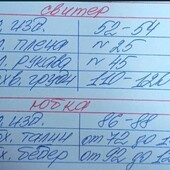 свитер
. изд. 52-54
л. плеча ~ 25
л. рукава ~ 45
хв. груди 110-120
юбка
. изд. 86-88
х. талии от 72 до 1
х. бёдер от 92 до 12